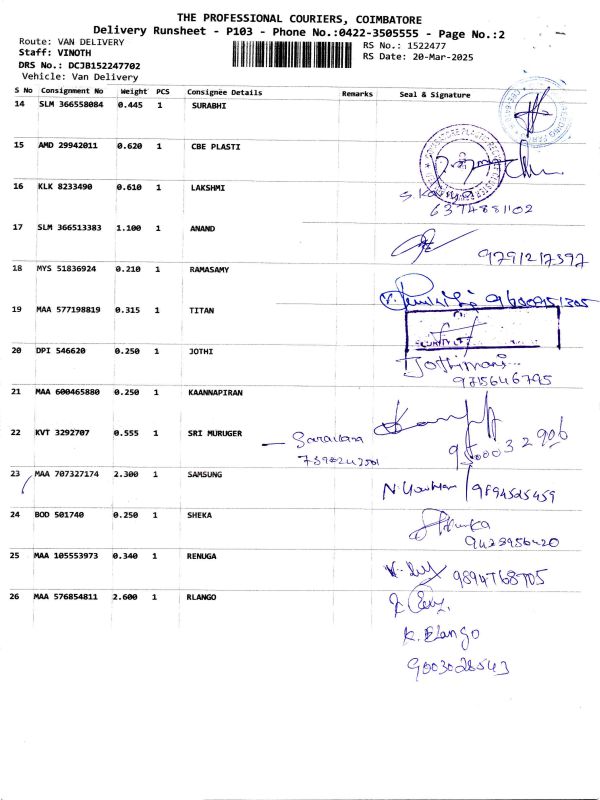 THE PROFESSIONAL COURIERS, COIMBATORE
Delivery Runsheet - P103 - Phone No.:0422-3505555 - Page No.:2
Route: VAN DELIVERY
RS No.: 1522477
Staff: VINOTH
RS Date: 20-Mar-2025
DRS No.: DCJB152247702
Vehicle: Van Delivery
S No Consignment No Weight PCS Consignee Details Remarks Seal & Signature
14 SLM 366558084 0.445 1 SURABHI
15 AMD 29942011 0.620 1 CBE PLASTI
16 KLK 8233490 0.610 1 LAKSHMI
6374881102
17 SLM 366513383 1.100 1 ANAND
9791217397
18 MYS 51836924 0.210 1 RAMASAMY
19 MAA 577198819 0.315 1 TITAN
20 DPI 546620 0.250 1 JOTHI
Jothimani
9715646795
21 MAA 600465880 0.250 1 KAANNAPIRAN
22 KVT 3292707 0.555 1 SRI MURUGER
23 MAA 707327174 2.300 1 SAMSUNG
24 BOD 501740 0.250 1 SHEKA
25 MAA 105553973 0.340 1 RENUGA
9894768705
26 MAA 576854811 2.600 1 RLANGO
K. Elango
9003028543